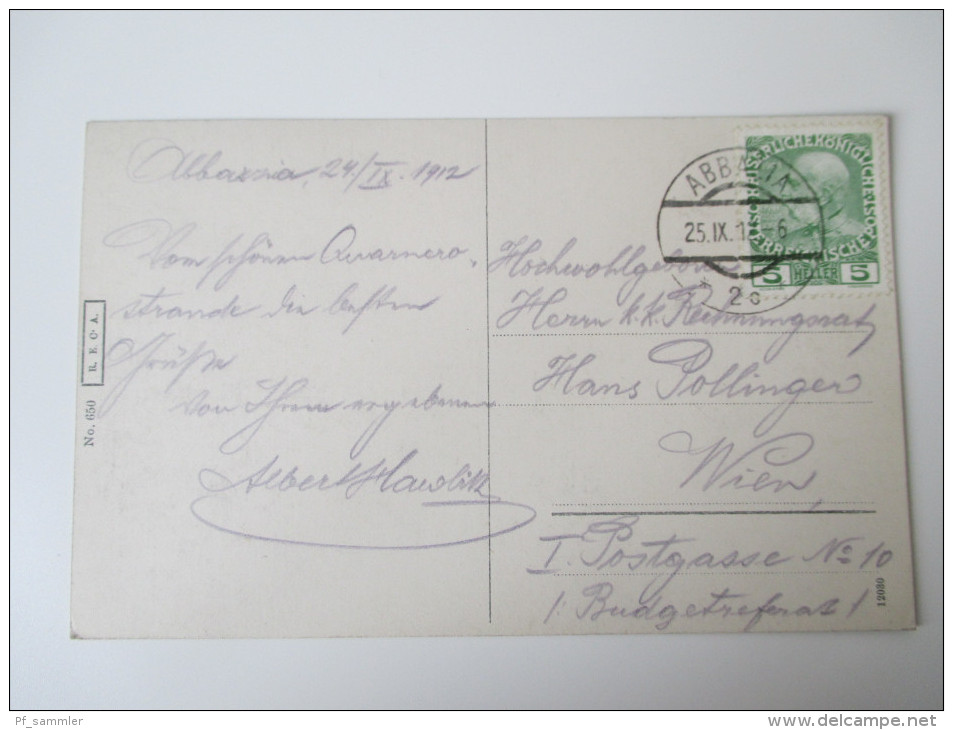 Abbazia, 24./IX. 1912
Vom schönen Quarnero-
strande die besten
Grüße
von Ihrem ergebenen
Albert Hawlitz
No. 650 R. E. C. A.
ABBAZIA
25.IX.1 6
2c
KAISERLICHE KÖNIGLICHE
ÖSTERREICHISCHE POST
5 HELLER 5
Hochwohlgeboren
Herrn k. k. Rechnungsrat
Hans Pollinger
Wien,
I. Postgasse No 10
/: Budgetreferat /
12080
Pf_sammler
http://www.delcampe.net